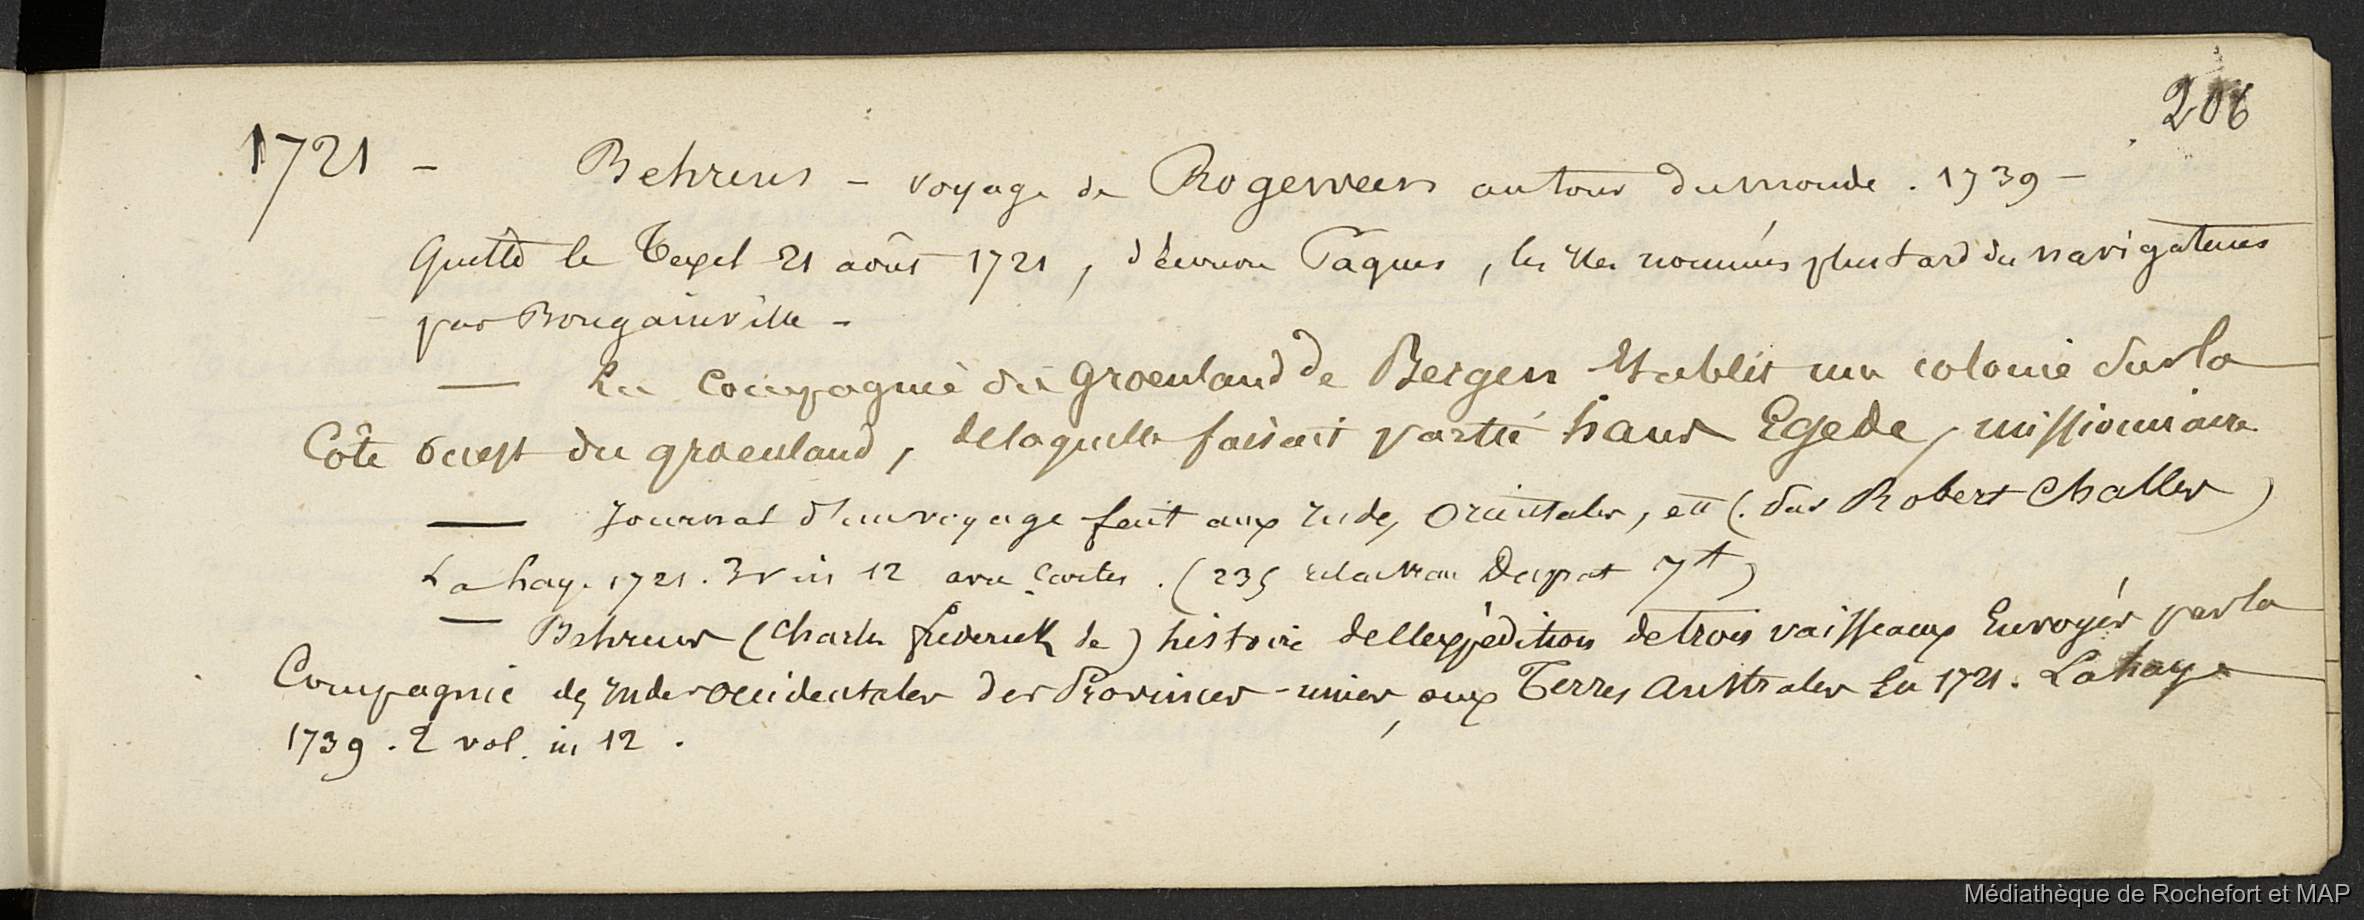 206
1721 - Behrens - voyage de Rogeween autour du monde . 1739 -
Quitte le Texel 21 août 1721, découvre Pâques, les Iles nommées plus tard des navigateurs
par Bougainville -
— La Compagnie du Groenland de Bergen Etablit une colonie sur la
Côte ouest du groenland, de laquelle faisait partie hans Egede, missionnaire
— Journal d'un voyage fait aux Indes Orientales, ett (. par Robert Challes)
La haye 1721. 3 v in 12 avec Cartes . (235 7 tt)
— Behrens (Charles frederick de) histoire de l'expédition de trois vaisseaux Envoyés par la
Compagnie des Indes occidentales des Provinces-unies, aux Terres australes En 1721. La haye
1739 . 2 vol. in 12 .
Médiathèque de Rochefort et MAP